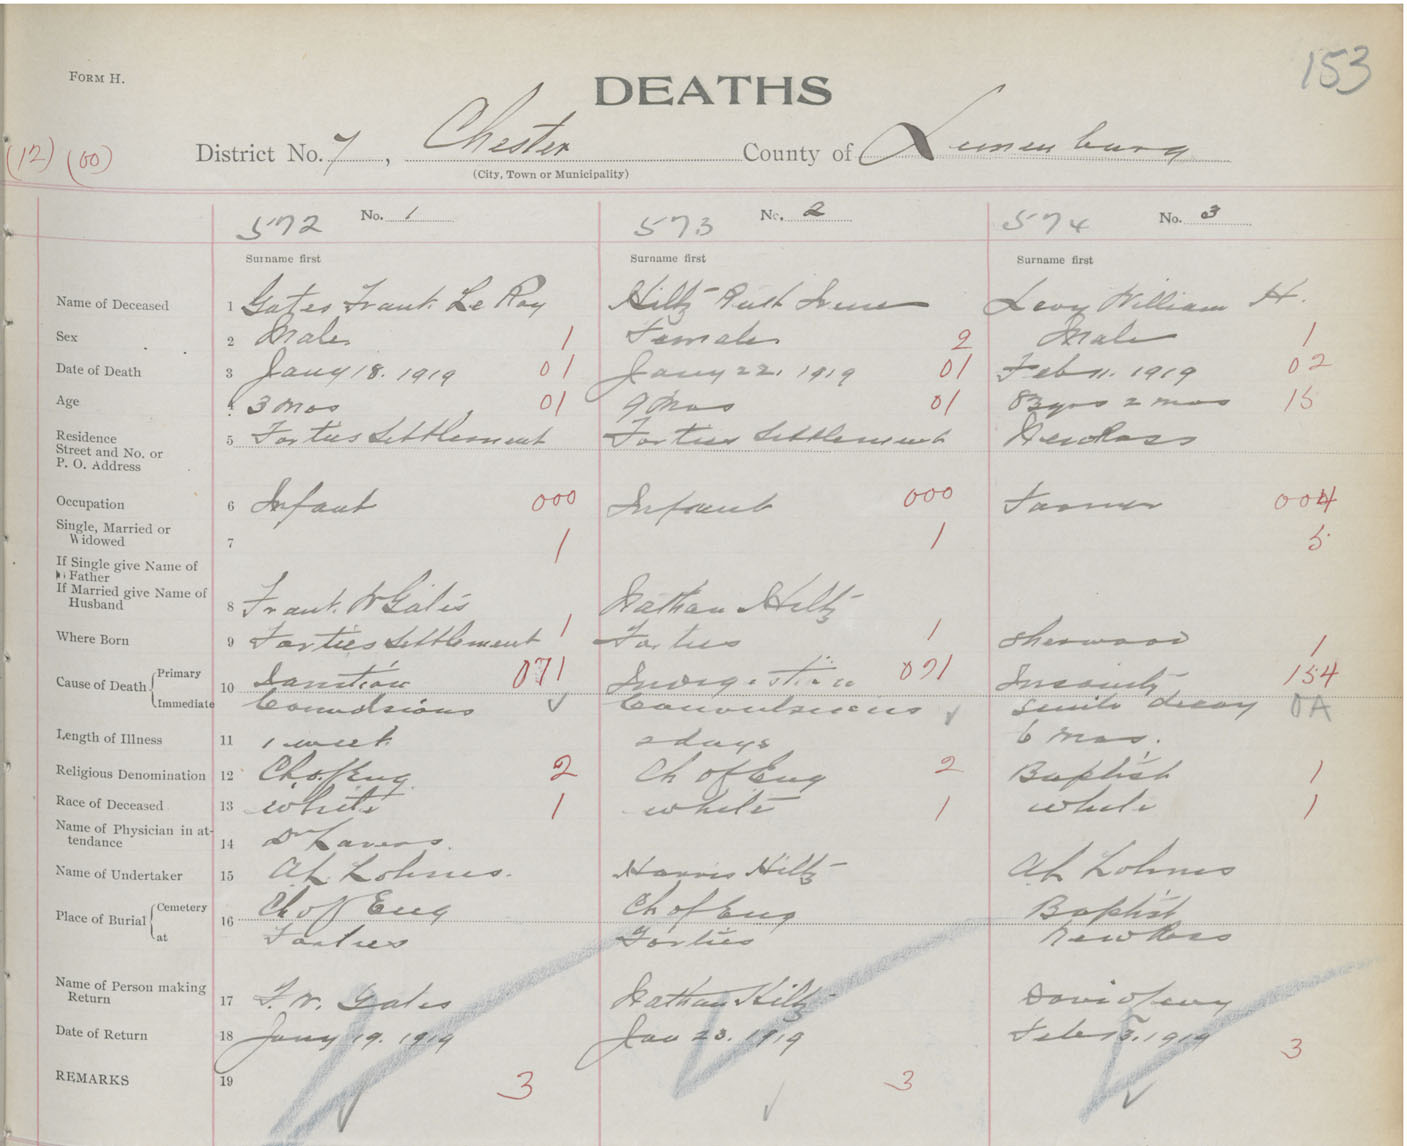 FORM H.
DEATHS
153
(12) (00)
District No. 7, Chester County of Lunenburg
(City, Town or Municipality)
572 No. 1 573 No. 2 574 No. 3
Surname first Surname first Surname first
Name of Deceased 1 Gates Frank Le Roy Hiltz Ruth Irene Levy William H.
Sex 2 Male 1 Female 2 Male 1
Date of Death 3 Jany 18. 1919 01 Jany 22. 1919 01 Feb 11. 1919 02
Age 4 3 mos 01 9 mos 01 83 yrs 2 mos 15
Residence
Street and No. or 5 Forties Settlement Forties Settlement New Ross
P. O. Address
Occupation 6 Infant 000 Infant 000 Farmer 004
Single, Married or
Widowed 7 1 1 5
If Single give Name of
Father
If Married give Name of
Husband 8 Frank W Gates Nathan Hiltz
Where Born 9 Forties Settlement 1 Forties 1 Sherwood 1
Cause of Death Primary 10 Inanition 071 Indigestion 071 154
Immediate Convulsions Convulsions Senile decay OA
Length of Illness 11 1 week 2 days 6 mos.
Religious Denomination 12 Ch of Eng 2 Ch of Eng 2 Baptist 1
Race of Deceased 13 White 1 white 1 white 1
Name of Physician in at-
tendance 14 Dr Lavers.
Name of Undertaker 15 Harris Hiltz
Place of Burial Cemetery 16 Ch of Eng Ch of Eng Baptist
at Forties Forties New Ross
Name of Person making
Return 17 F. W. Gates Nathan Hiltz David Levy
Date of Return 18 Jany 19. 1919 Jan 23. 1919 Feb 13. 1919 3
REMARKS 19 3 3